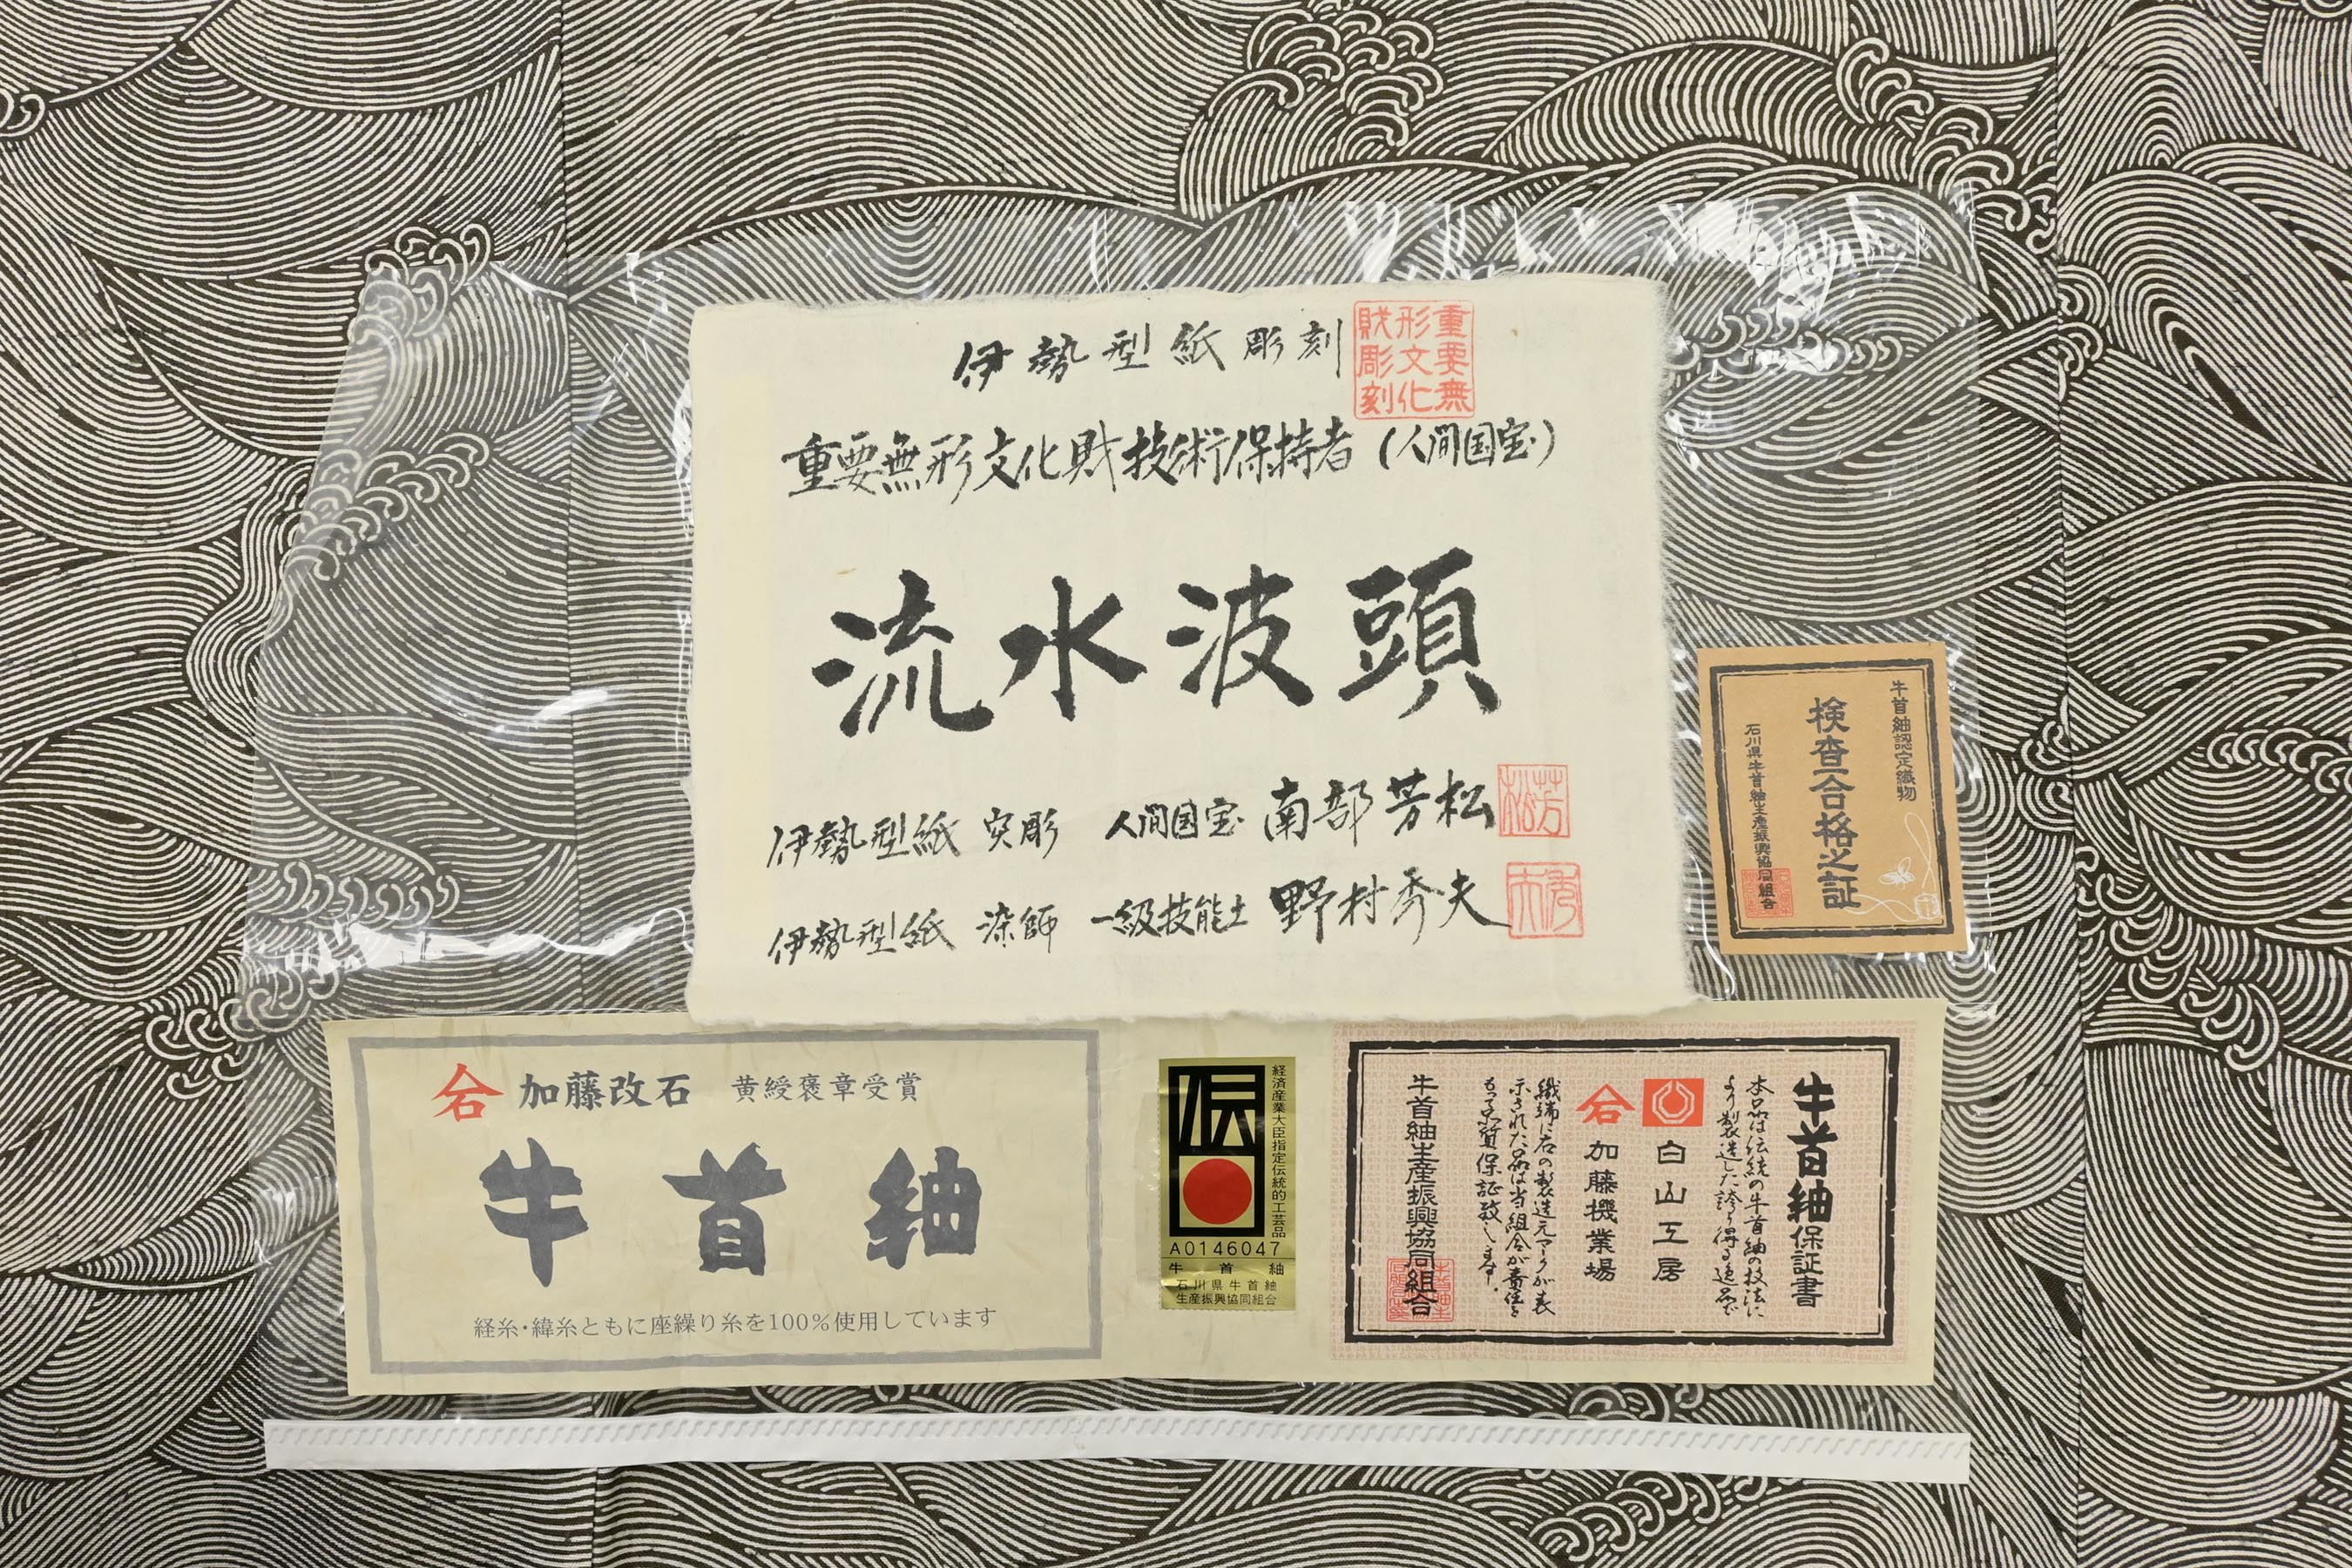 伊勢型紙彫刻
重要無形文化財彫刻
重要無形文化財技術保持者（人間国宝）
流水波頭
伊勢型紙 突彫 人間国宝 南部芳松
芳松
伊勢型紙 染師 一級技能士 野村秀夫
秀夫
牛首紬認定織物
検査合格之証
石川県牛首紬生産振興協同組合
石 加藤改石 黄綬褒章受賞
牛首紬
経糸・緯糸ともに座繰り糸を100%使用しています
経済産業大臣指定伝統的工芸品
伝
A0146047
牛首紬
石川県牛首紬
生産振興協同組合
牛首紬保証書
本品は伝統の牛首紬の技法に
より製造した誇り得る逸品で
白山工房
加藤機業場
織端に右の製造元マークが表
示された品は当組合が責任を
もって品質保証致します。
牛首紬生産振興協同組合